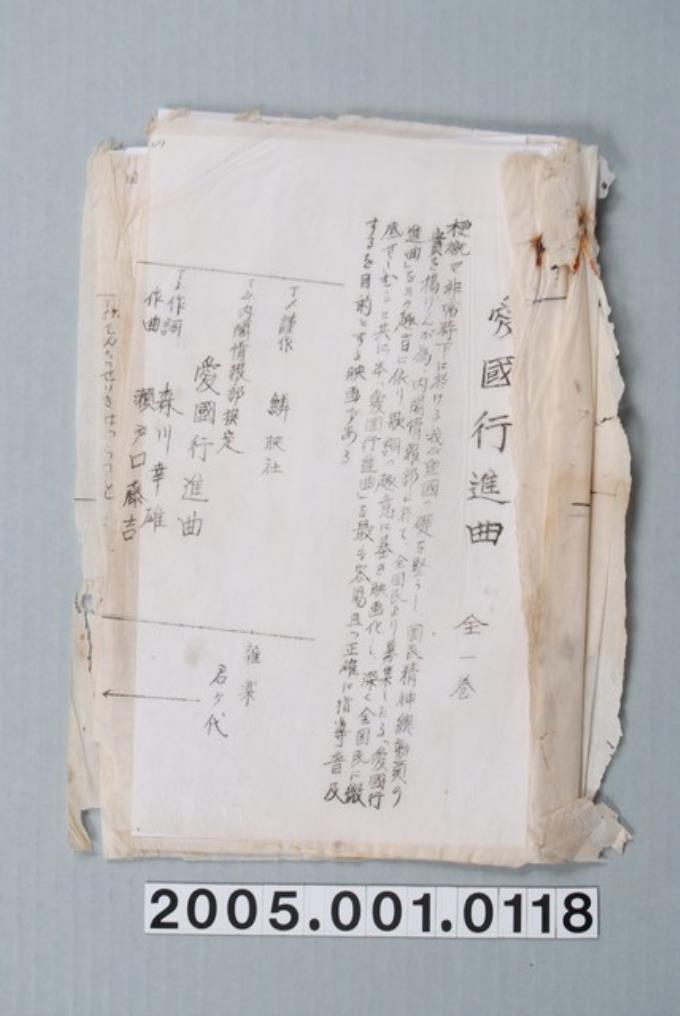 愛國行進曲 全一巻
梗概 非常時下に於ける我が皇國の礎を堅うし国民精神總動員の
實を揚げんが為、内閣情報部に於て、全国民より募集したる「愛國行
進曲」を其の趣旨に依り歌詞の趣意に基き映画化し、深く全国民に徹
底せしむると共に、本「愛國行進曲」を最も容易且つ正確に指導普及
するを目的とする映画である
T1 謹作 鱗映社
T2 内閣情報部撰定
愛國行進曲
T3 作詞 森川幸雄
作曲 瀬戸口藤吉
雅楽
君ヶ代
2005.001.0118